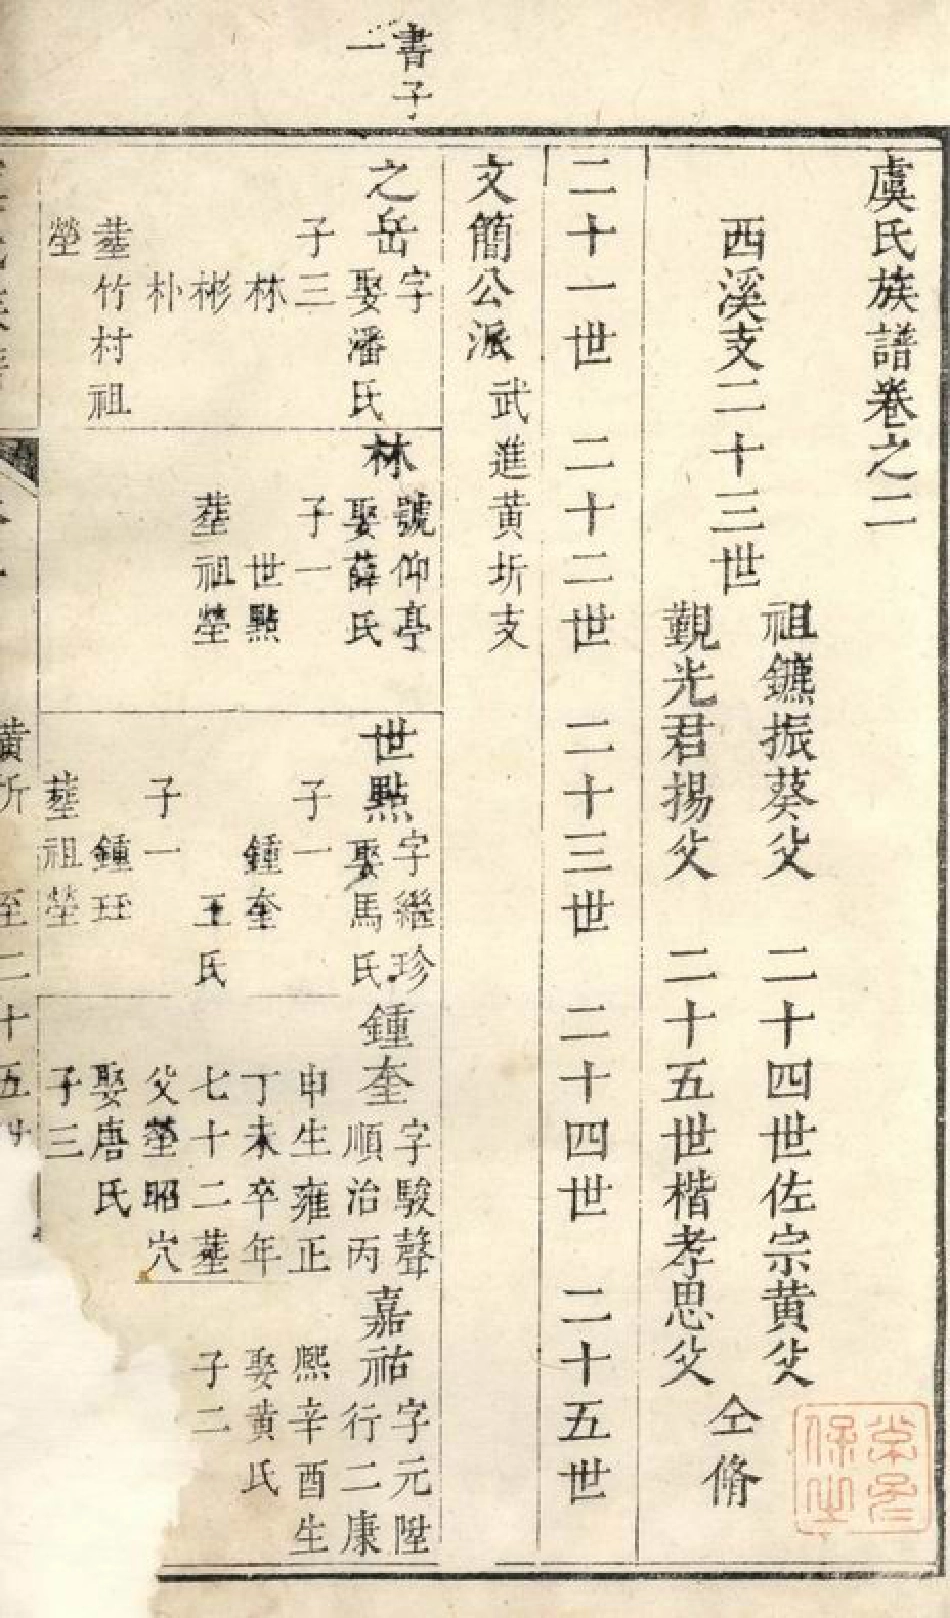 虞氏族譜卷之二
西溪支二十三世
祖鑣振葵父
覲光君揚父
二十四世佐宗黄父
二十五世楷孝思父
仝脩
二十一世 二十二世 二十三世 二十四世 二十五世
文簡公派 武進黄圻支
書子
一
之岳 字
娶潘氏
子三
林
彬
朴
塟竹村祖
塋
林 號仰亭
娶薛氏
子一
世點
塟祖塋
世點 字繼珍
娶馬氏
子一
鍾奎
王氏
子一
鍾玨
塟祖塋
鍾奎 字駿聲
順治丙
申生雍正
丁未卒年
七十二塟
父塋昭穴
娶唐氏
子三
嘉祐 字元陞
行二康
熙辛酉生
娶黄氏
子二
黄圻
至二十五